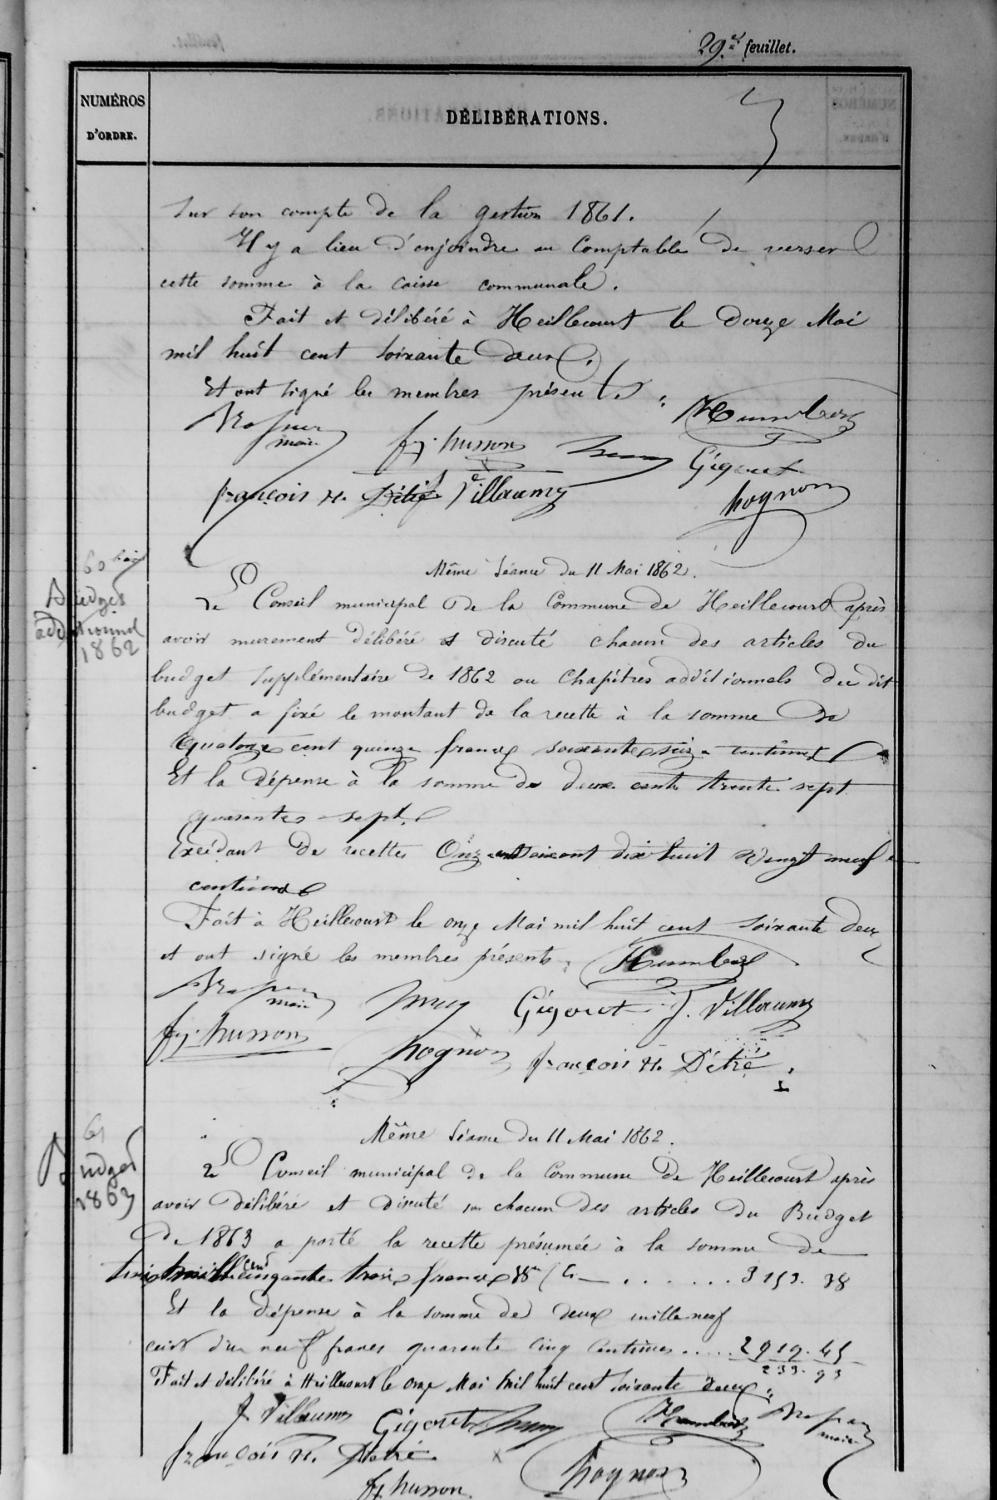 29.e feuillet.
NUMÉROS D'ORDRE.
DÉLIBÉRATIONS.
Sur son compte de la gestion 1861.
Il y a lieu d'enjoindre au Comptable de verser
cette somme à la caisse communale.
Fait et délibéré à Heillecourt le douze Mai
mil huit cent soixante deux.
Et ont signé les membres présents.
maire fj. husson Gigout
françois N. Détré Villaume hognon
60 bis
Budget
additionnel
1862
Même Séance du 11 Mai 1862.
Le Conseil municipal de la Commune de Heillecourt après
avoir murement délibéré et discuté chacun des articles du
budget supplémentaire de 1862 ou chapitres additionnels du dit
budget a fixé le montant de la recette à la somme de
Quatorze cent quinze francs soixante seize centimes
Et la dépense à la somme de deux cents trente sept
quarante sept.
Excédant de recettes dix huit vingt neuf
centimes
Fait à Heillecourt le onze Mai mil huit cent soixante deux
et ont signé les membres présents. Humbert
maire Gigout J. Villaume
fj. husson hognon françois N. Détré
61
Budget
1863
Même Séance du 11 Mai 1862.
Le Conseil municipal de la Commune de Heillecourt après
avoir délibéré et discuté sur chacun des articles du Budget
de 1863 a porté la recette présumée à la somme de
trois mille cent cinquante trois francs 38 c ....... 3153. 38
Et la dépense à la somme de deux mille neuf
cent dix neuf francs quarante cinq centimes ..... 2919. 45
233. 93
Fait et délibéré à Heillecourt le onze Mai mil huit cent soixante deux.
J Villaume Gigout Humbert maire
françois N. Détré
fj husson hognon